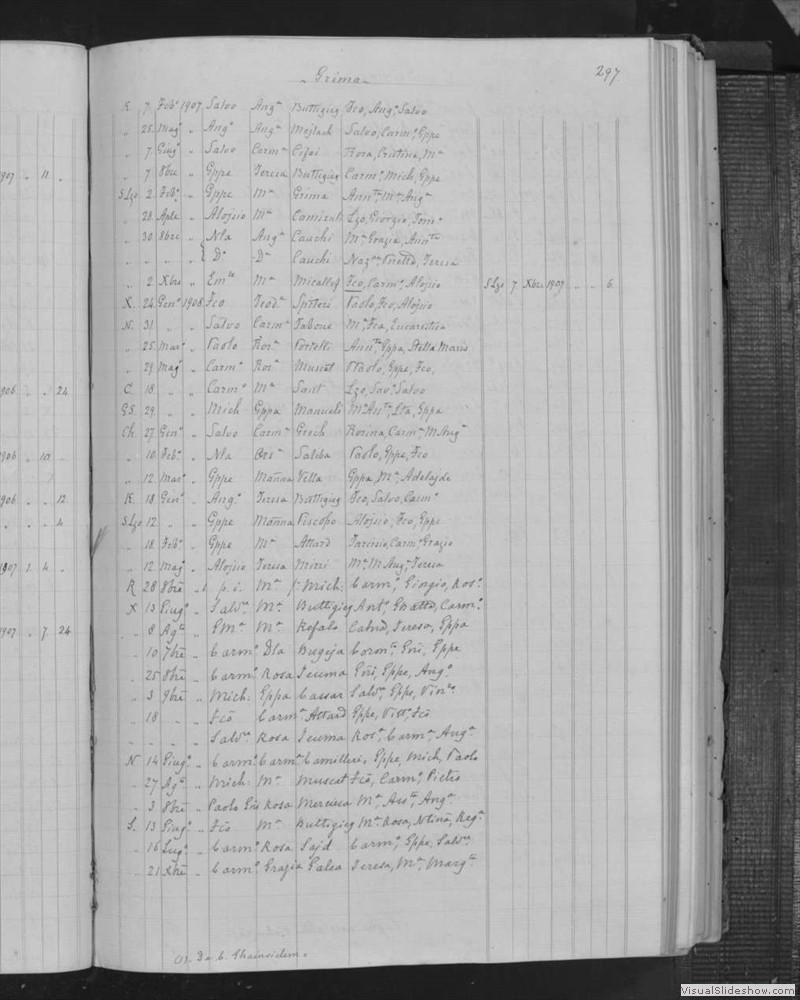 297
Grima
K 7 Feb° 1907 Salvo Ang^a Buttigieg Fco, Ang°, Salvo
„ 25 Mag° „ Ang° Ang^a Mejlach Salvo, Carm°, Gppe
„ 7 Giug° „ Salvo Carm^a Cefai Rosa, Cristina, M^a
1907 „ 11 „ „ 7 8bre „ Gppe Teresa Buttigieg Carm°, Mich, Gppe
S.Lzo 2 Feb° „ Gppe M^a Grima Ann^ta, M^a, Ang^a
„ 28 Aple „ Alojsio M^a Camilleri Lzo, Giorgio,
„ 30 8bre „ Nla Ang^a Cauchi M^a Grazia, Ann^ta
„ „ „ „ D° D^a Cauchi Naz^na Teresa
„ 2 Xbre „ Em^le M^a Micallef Fco, Carm°, Alojsio S Lzo 7 Xbre 1907 „ „ 6
X. 24 Gen° 1908 Fco Teod^a Spiteri Paolo, Fco, Alojsio
N. 31 „ „ Salvo Carm^a Tabone M^a, Fca, Eucaristica
„ 25 Mar° „ Paolo Ros^a Portelli Ann^ta, Gppa, Stella Maris
„ 29 Mag° „ Carm° Ros^a Muscat Paolo, Gppe, Fco,
1906 „ „ 24 C 18 „ „ Carm° M^a Sant Lzo, Sav°, Salvo
GS. 29 „ „ Mich Gppa Manueli M^a Ant^a, Lta, Gppa
Ch. 27 Gen° „ Salvo Carm^a Grech Rosina, Carm^a, M Ang^a
1906 „ 10 „ 10 Feb° „ Nla Ors^a Saliba Paolo, Gppe, Fco
„ 12 Mar° „ Gppe Marina Vella Gppa, M^a, Adelajde
1906 „ „ 12 K. 18 Gen° „ Ang° Teresa Buttigieg Fco, Salvo, Carm°
„ „ „ 4 S.Lzo 12 „ „ Gppe Marina Piscopo Alojsio, Fco, Gppe
„ 18 Feb° „ Gppe M^a Attard Tarcisio, Carm°, Grazio
1907 1 4 „ „ 12 Mag° „ Aloisio Teresa Mizzi M^a, M Ang^a, Teresa
R 28 8bre „ p. i. M^a Mich: Carm°, Giorgio, Ros°
X 13 Giug° „ Salv^re M^a Buttigieg Ant°, Gbatta, Carm°
1907 „ 7 24 „ 8 Ag^to „ Em^le M^a Refalo Catna, Teresa, Gppa
„ 10 7bre „ Carm° Dla Bugeja Coron^ta, Gni, Gppe
„ 25 8bre „ Carm° Rosa Teuma Gni, Gppe, Ang°
„ 3 9bre „ Mich: Gppa Cassar Salv^re, Gppe,
„ 18 „ „ Fco Carm^a Attard Gppe, Vitt°, Fco
„ „ „ „ Salv^re Rosa Teuma Ros^a, Carm^a, Ang^a
N 14 Giug° „ Carm° Carm^a Camilleri, Gppe, Mich, Paolo
„ 27 Ag^to „ Mich: M^a Muscat Fco, Carm°, Pietro
„ 3 8bre „ Paolo Gni Rosa Mercieca M^a, Ass^ta, Ang^a
S. 13 Giug° „ Fco M^a Buttigieg M^a Rosa, Ntina, Reg^a
„ 16 Lug° „ Carm° Rosa Sajd Carm°, Gppe, Salv^re
„ 21 Xbre „ Carm° Grazia Galea Teresa, M^a, Marg^ta
(1).
VisualSlideshow.com